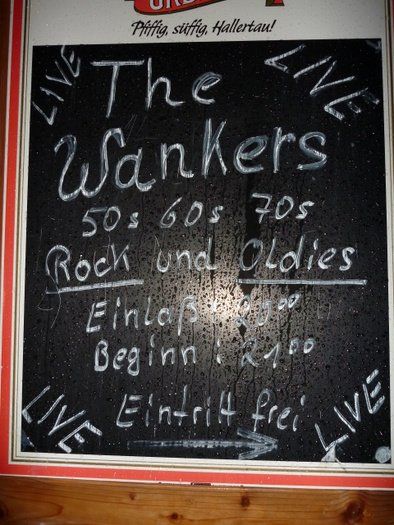 Pfiffig, süffig, Hallertau!
LIVE LIVE
The
Wankers
50s 60s 70s
Rock und Oldies
Einlaß: 20⁰⁰
Beginn: 21⁰⁰
Eintritt frei
LIVE LIVE